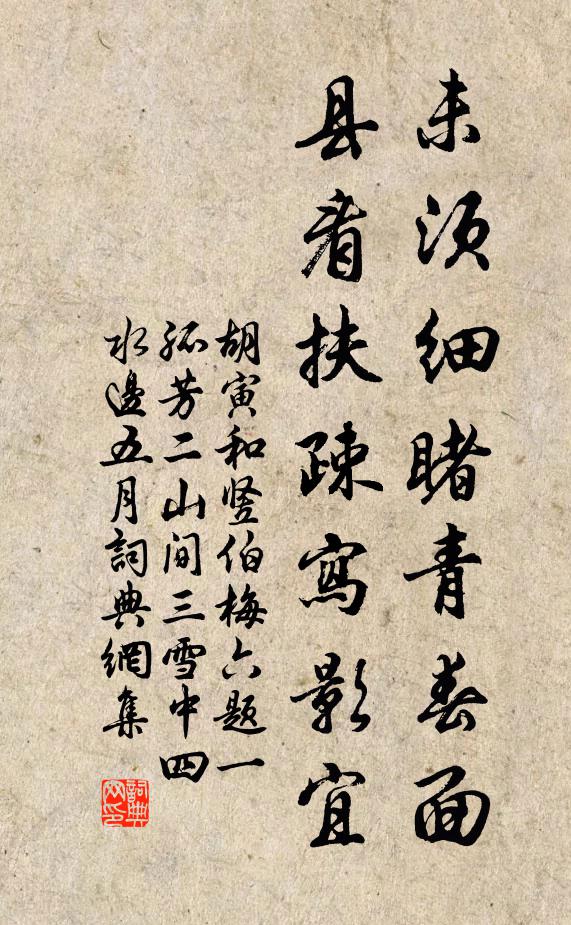 未须细睹青春面
县看扶疎写影宜
胡寅和竖伯梅六题一
孤芳二山间三雪中四
水邊五月詞典網集
詞典网印